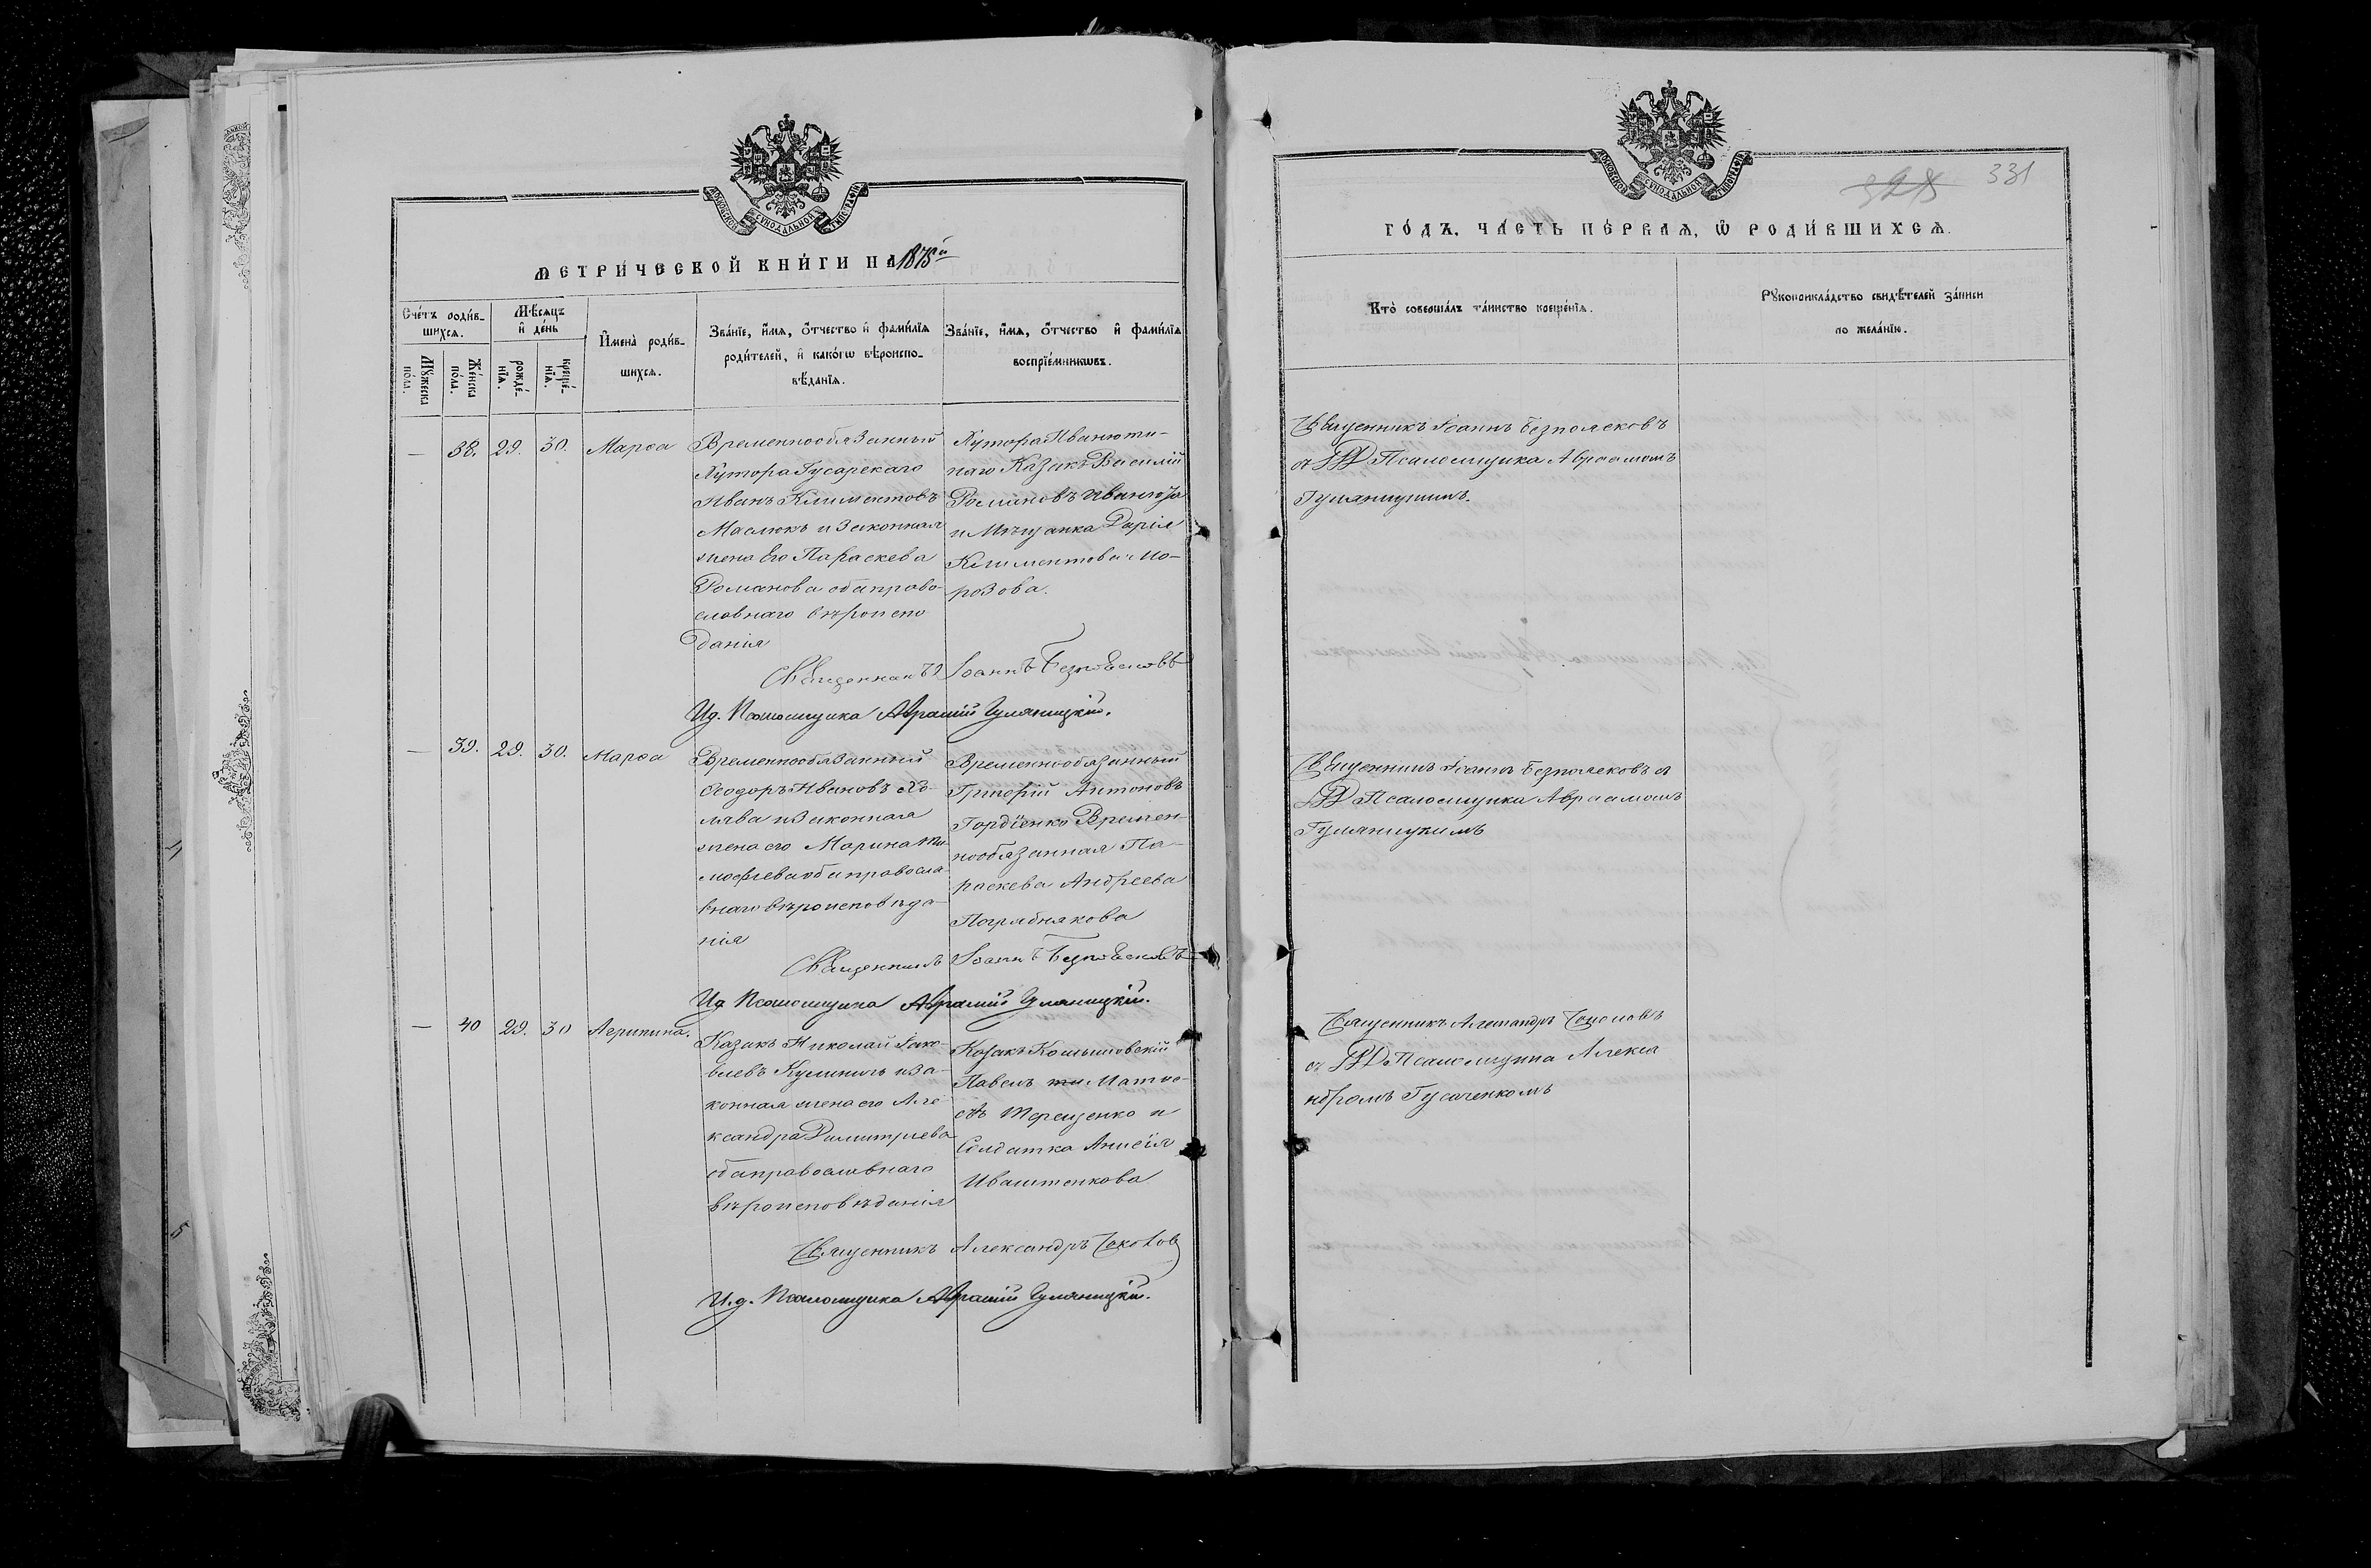 МОСКОВСКОЙ СѴНОДАЛЬНОЙ ТИПОГРАФІИ
МЕТРИ́ЧЕСКОЙ КНИ́ГИ НА 1875й
Сче́тъ роди́в-
шихсѧ.
Мꙋ́жеска
по́ла.
Же́нска
по́ла.
Мѣ́сѧцъ
и҆ де́нь
рожде́-
нїѧ.
креще́-
нїѧ.
И҆мена̀ роди́в-
шихсѧ.
Зва́нїе, и҆́мѧ, ѻ҆́тчество и҆ фами́лїѧ
роди́телей, и҆ како́гѡ вѣроиспо-
вѣ́данїѧ.
Зва́нїе, и҆́мѧ, ѻ҆́тчество и҆ фами́лїѧ
воспрїе́мникѡвъ.
— 38. 29. 30. Марѳа
Временнообязанный
Хутора Гусарскаго
Иванъ Климентовъ
Маслюкъ и Законная
жена Его Параскева
Романова оба право-
славнаго вѣроиспо
данія
Хутора Иванюти-
наго Казакъ Василій
Романовъ Иванюта
и Мѣщанка Дарія
Климентова Мо-
розова.
Священникъ Іоаннъ Безполековъ
Ид. Псаломщика Авраамій Гуляницкій.
— 39. 29. 30. Марѳа
Временнообязанный
Ѳеодоръ Ивановъ Хо-
лява и Законная
жена его Марина Ти-
мофѣева оба правосла
внаго вѣроисповѣда-
нія
Временнообязанный
Григорій Антоновъ
Гордіенко Времен-
нообязанная Па-
раскева Андреева
Пограбнякова
Священникъ Іоаннъ Безполековъ
Ид Псаломщика Авраамій Гуляницкій.
— 40 29. 30 Агрипина.
Казакъ Николай Іако-
влевъ Кулиничъ и За-
конная жена его Але
ксандра Димитріева
оба православнаго
вѣроисповѣданія
Козакъ
Павелъ Матѳе-
евъ Терещенко и
Солдатка Анисія
Иваштенкова
Священникъ Александръ
И.д. Псаломщика Авраамій Гуляницкій.
МОСКОВСКОЙ СѴНОДАЛЬНОЙ ТИПОГРАФІИ
331
ГО́ДЪ, ЧА́СТЬ ПЕ́РВАѦ, Ѡ҆ РОДИ́ВШИХСѦ.
Кто̀ соверша́лъ та́инство креще́нїѧ.
Рꙋкоприкла́дство свидѣ́телей за́писи
по жела́нїю.
Священникъ Іоаннъ Безполековъ
съ ИД Псаломщика Авраамомъ
Гуляницкимъ.
Священникъ Іоаннъ Безполековъ съ
ИД Псаломщика Авраамомъ
Гуляницкимъ
Священникъ Александръ
съ ИД Псаломщика Алекса
ндромъ Гусаченкомъ